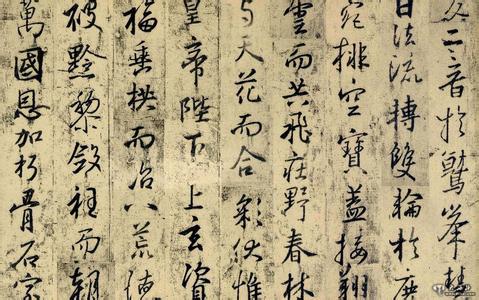 交二音於鷲峯慧
日法流轉雙輪於鹿
菀排空寶蓋接翔
雲而共飛莊野春林
與天花而合彩伏惟
皇帝陛下上玄資
福垂拱而治八荒德
被黔黎斂衽而朝
萬國恩加朽骨石室